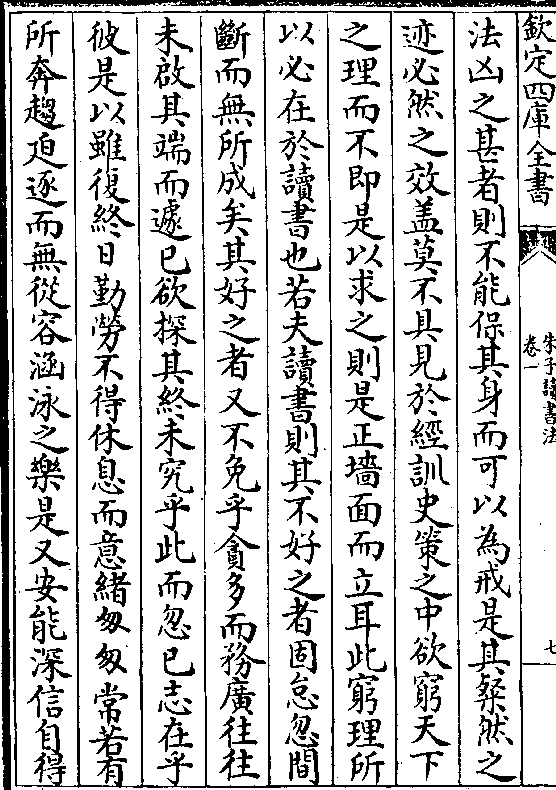 欽定四庫全書
朱子讀書法
卷一
七
法凶之甚者則不能保其身而可以為戒是其粲然之
迹必然之效盖莫不具見於經訓史策之中欲窮天下
之理而不即是以求之則是正墻面而立耳此窮理所
以必在於讀書也若夫讀書則其不好之者固怠忽間
斷而無所成矣其好之者又不免乎貪多而務廣往往
未啟其端而遽已欲探其終未究乎此而忽已志在乎
彼是以雖復終日勤勞不得休息而意緒匆匆常若有
所奔趨迫逐而無從容涵泳之樂是又安能深信自得